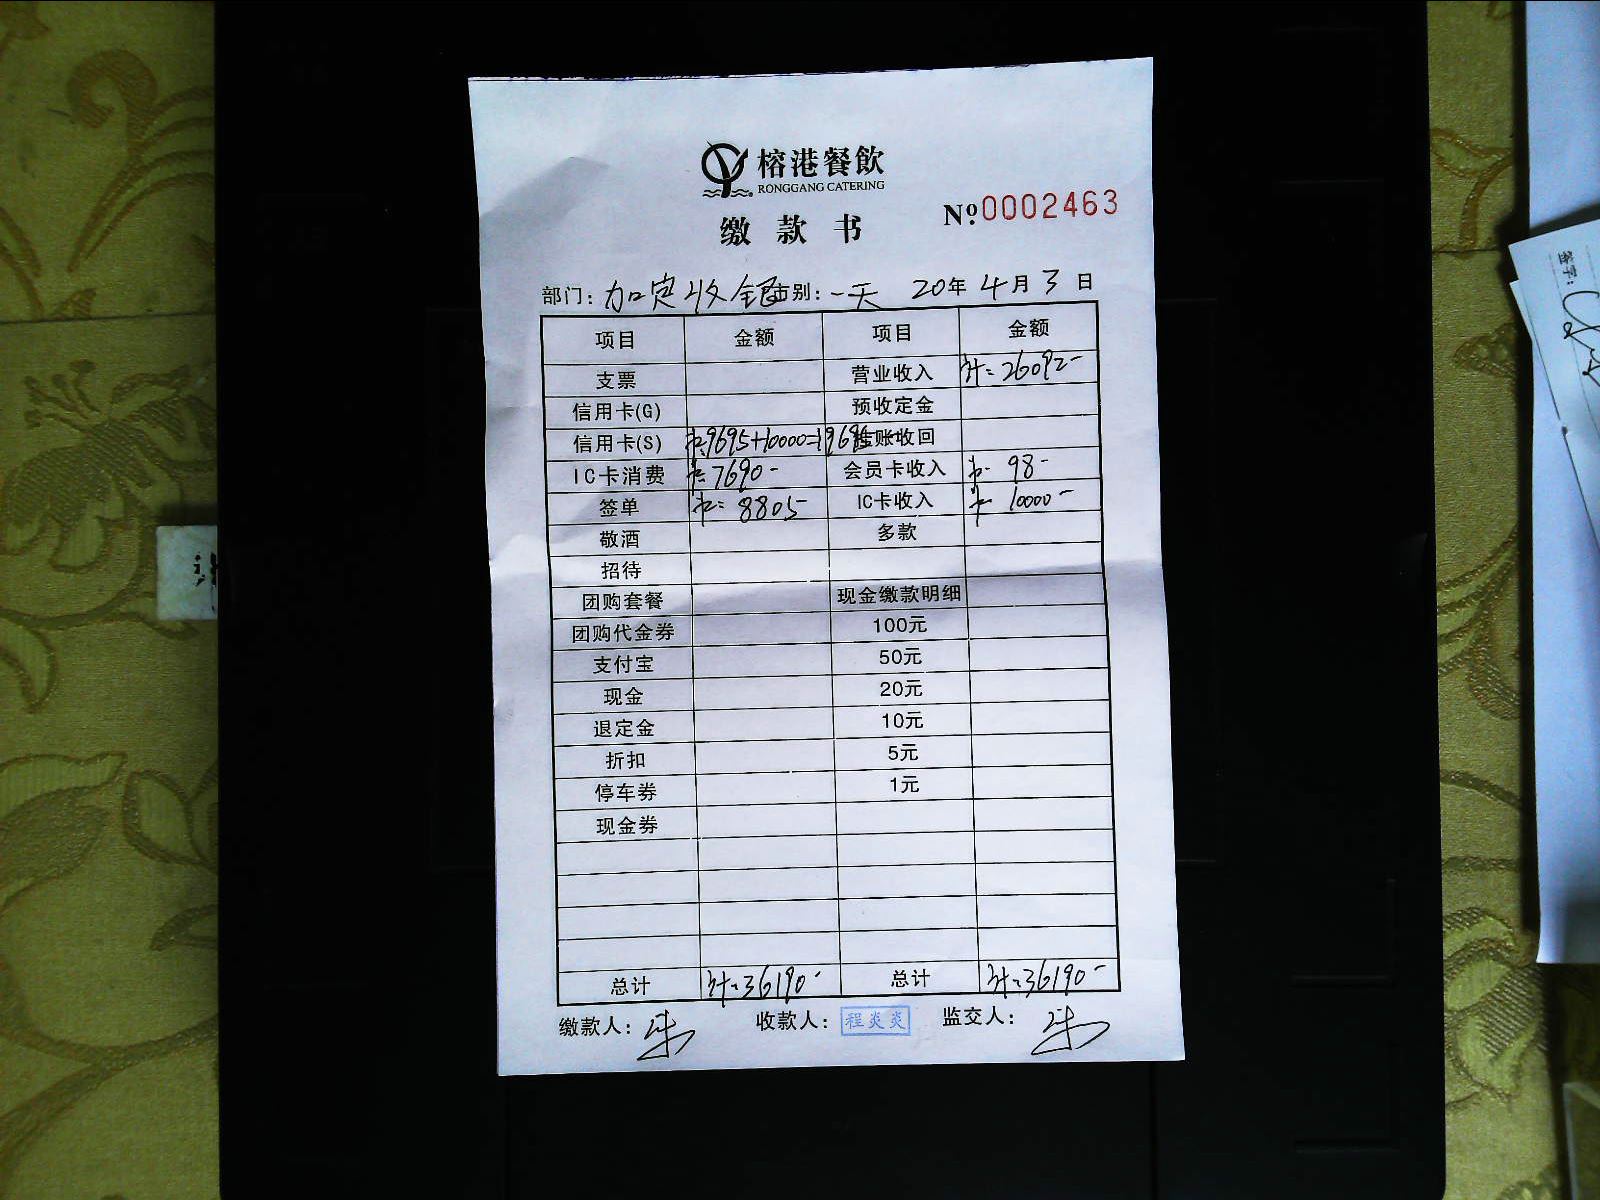 榕港餐飲
RONGGANG CATERING
缴款书 Nº 0002463
部门: 加定收银 市别: 一天 20年4月3日
项目 金额 项目 金额
支票 营业收入 计: 26092-
信用卡(G) 预收定金
信用卡(S) 9695+10000=19695 挂账收回
IC卡消费 7690- 会员卡收入 98-
签单 8805 IC卡收入 10000-
敬酒 多款
招待
团购套餐 现金缴款明细
团购代金券 100元
支付宝 50元
现金 20元
退定金 10元
折扣 5元
停车券 1元
现金券
总计 计:36190- 总计 计:36190-
缴款人: 朱 收款人: 程炎炎 监交人: 朱
签字: